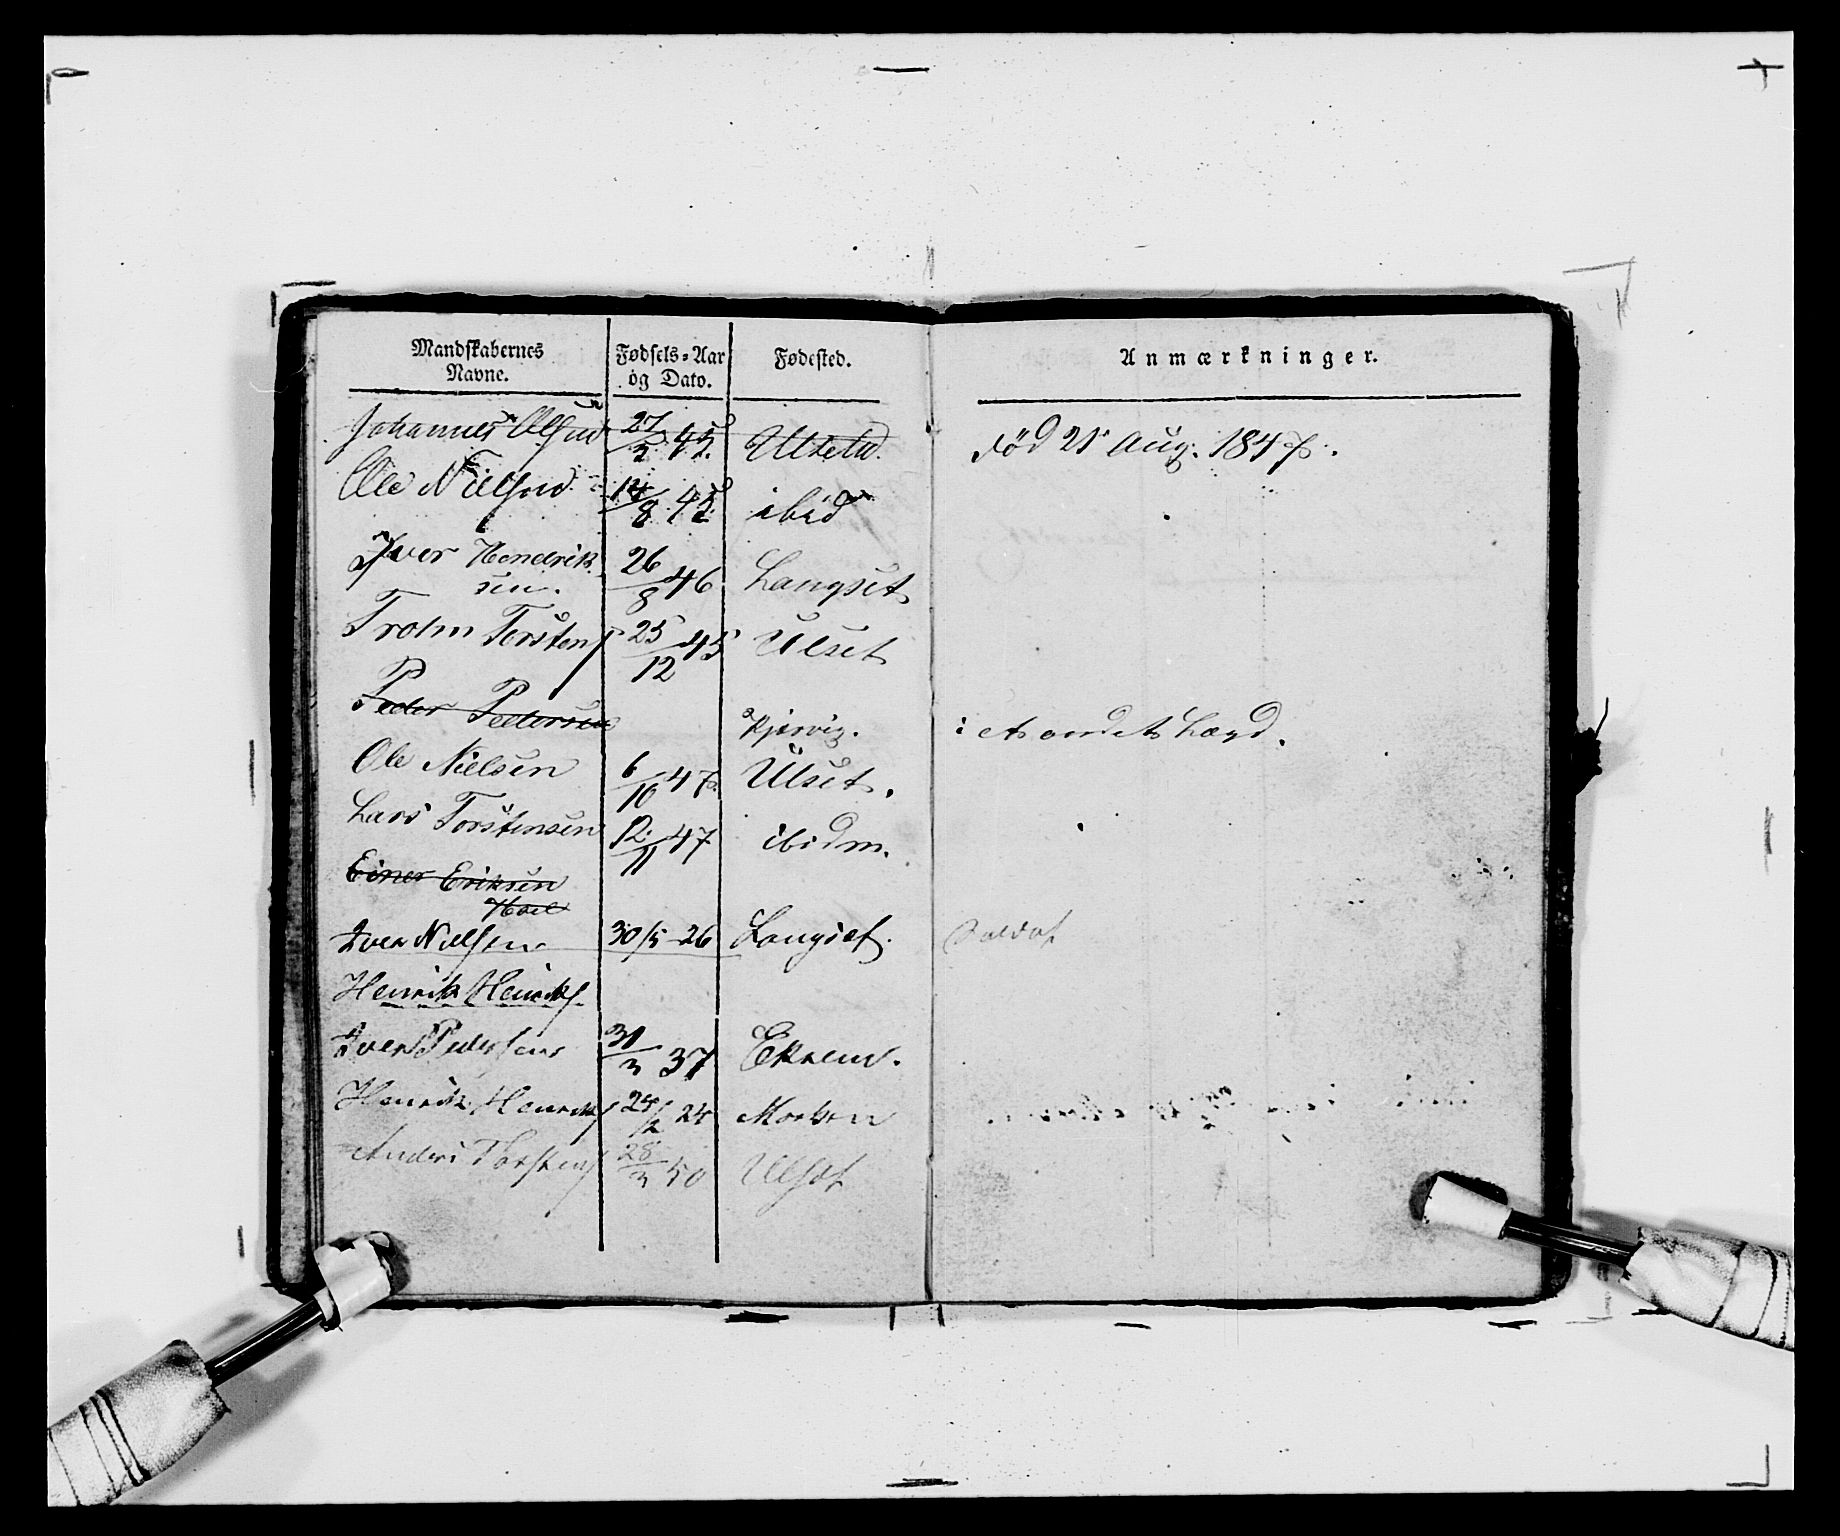 Mandskabernes
Navne.
Fødsels-Aar
og Dato.
Fødested.
Anmærkninger.
Johannes Olsen 27/2 45. Ulset
Född 21 Aug. 1847.
Ole Nielsen 14/8 45. ibid
Iver Hendrik
sen. 26/8 46 Langset
Trohn Torstens 25/12 45 Ulset
Peder Pedersen Kjørvig. i et andet Lægd.
Ole Nielsen 6/10 47. Ulset.
Lars Torstensen 12/11 47 ibidm.
Einer Eriksen
Hoel
Iver Nielsen 30/5 26 Langset. Soldat
Henrik Henriks.
Iver Pedersen 31/3 37 Ekrem.
Henrik Henriks 24/2 24
Anders Torstens 28/3 50 Ulset